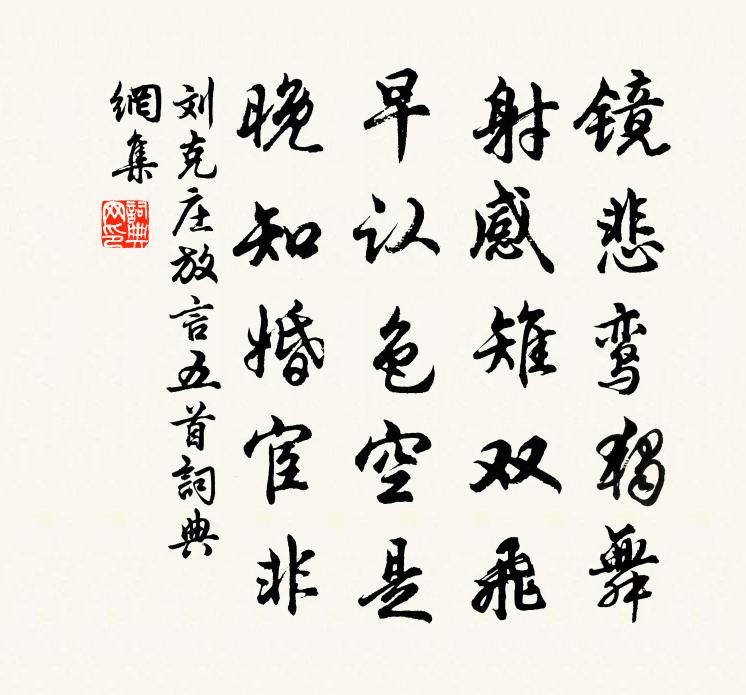 镜悲鸾独舞
射感雉双飞
早认色空是
晚知婚宦非
刘克庄放言五首詞典
網集
詞典
网印